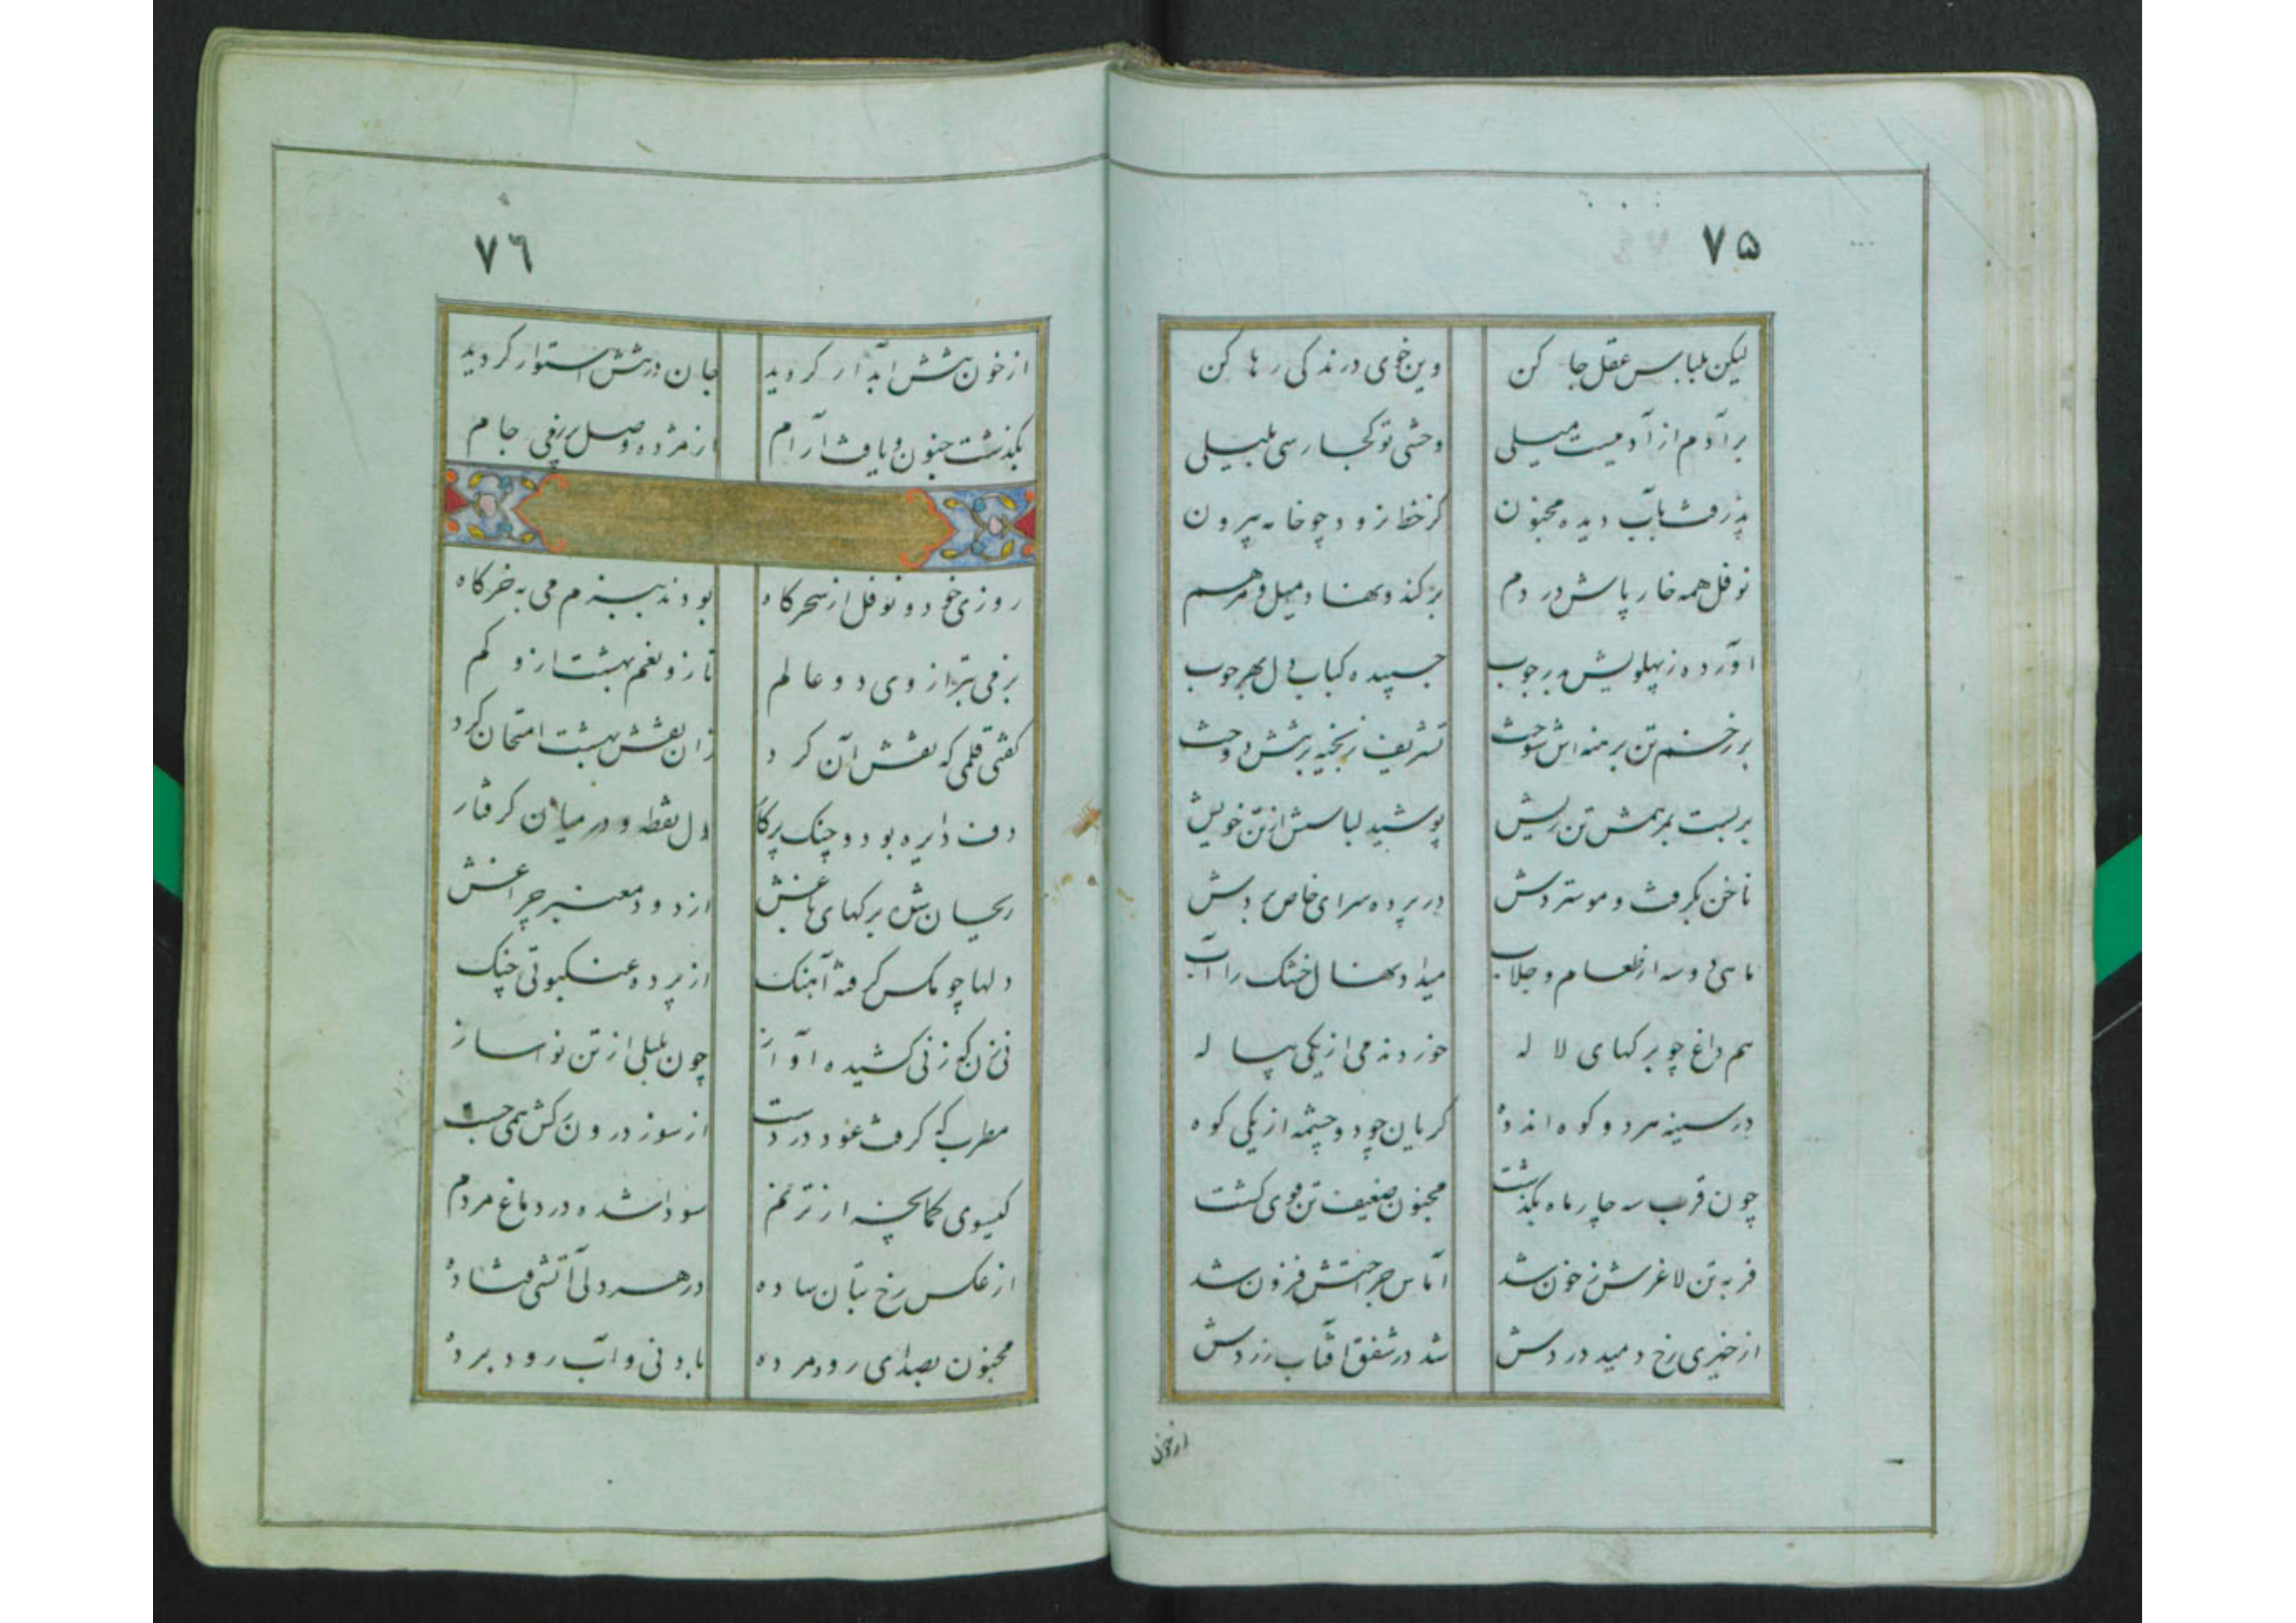 ۷۵
لیکن بلباس عقل جا کن وین خوی درندکی رها کن
برآدم از آدمیست میلی وحشی تو کجا رسی بلیلی
پذرفت بآب دیده مجنون کز خط نرود چو خامه بیرون
نوفل همه خار پاش در دم برکند و نهاد میل و مرهم
آورده ز پهلویش
بر زخم تن برهنه اش سوخت تشریف ز بخیه برتنش دوخت
بربست بمرهمش تن ریش پوشید لباسش از تن خویش
ناخن بکرفت و موستردش در پرده سرای خاص بردش
ماهی دوسه از طعام و جلاب میداد نهال خشک را آب
هم داغ چو برکهای لاله خوردند می از یکی پیاله
در سینه هر دو کوه اندوه کریان چو دو چشمه از یکی کوه
چون قرب سه چار ماه بکذشت مجنون ضعیف تن قوی کشت
فربه تن لاغرش ز خون شد آماس جراحتش فزون شد
از خیری رخ دمید وردش شد در شفق آفتاب زردش
از خون
۷٦
از خون تنش آبدار کردید جان در تنش استوار کردید
بکذشت جنون و یافت آرام از مژده وصل بر رفی جام
روزی خود و نوفل از سحرکاه بودند ببزم می به خرکاه
بزمی بتر از وی دو عالم ناز و نعم بهشت ازو کم
کفتی قلمی که نقش آن کرد زان نقش بهشت امتحان کرد
دف دایره بود و چنک پرکار دل نقطه و در میان کرفتار
ریحان شده برکهای باغش از دود معنبر چراغش
دلها چو مکس کرفته آهنک از پرده عنکبوتی چنک
نی زن که ز نی کشیده آواز چون بلبلی از تن نواساز
مطرب که کرفت عود در دست از سوز درون کش همی جست
کیسوی کمانچه از ترنم سودا شده در دماغ مردم
از عکس رخ بتان ساده در هر دلی آتشی فتاده
مجنون بصدای رود مرده باد نی و آب رود برده